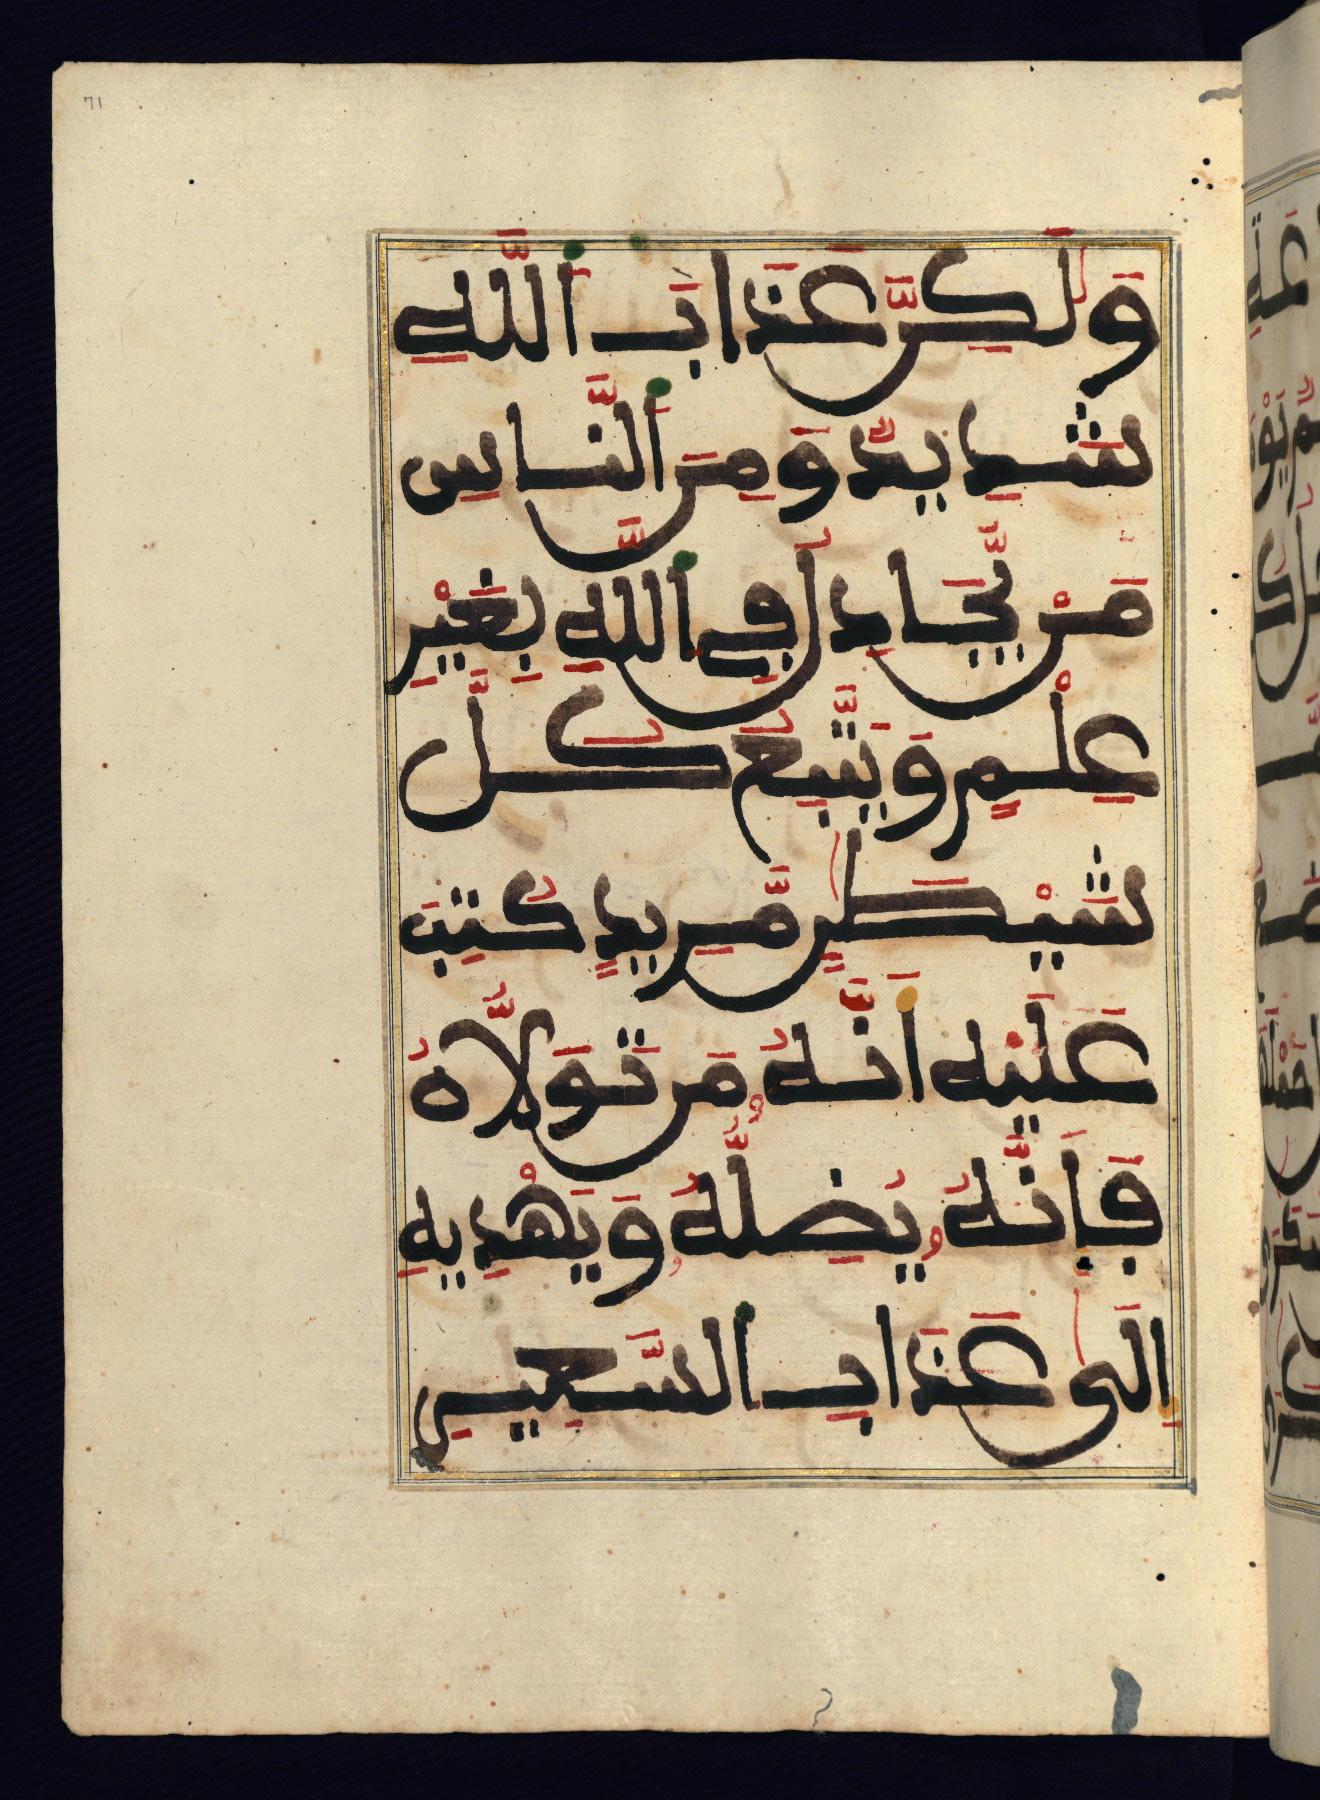 71
وَلَٰكِنَّ عَذَابَ اَللَّهِ
شَدِيدٌ وَمِنَ اَلنَّاسِ
مَنْ يُّجَادِلُ فِي اِللَّهِ بِغَيْرِ
عِلْمٍ وَيَتَّبِعُ كُلَّ
شَيْطَٰنٍ مَّرِيدٍ كُتِبَ
عَلَيْهِ أَنَّهُ مَن تَوَلَّاهُ
فَإِنَّهُ يُضِلُّهُ وَيَهْدِيهِ
إِلَىٰ عَذَابِ اِلسَّعِيرِ